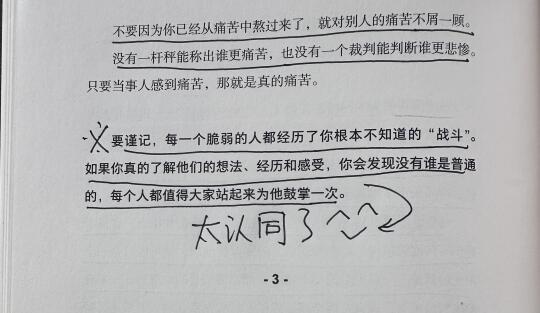 不要因为你已经从痛苦中熬过来了，就对别人的痛苦不屑一顾。
没有一杆秤能称出谁更痛苦，也没有一个裁判能判断谁更悲惨。
只要当事人感到痛苦，那就是真的痛苦。
要谨记，每一个脆弱的人都经历了你根本不知道的“战斗”。
如果你真的了解他们的想法、经历和感受，你会发现没有谁是普通
的，每个人都值得大家站起来为他鼓掌一次。
太认同了^_^
- 3 -